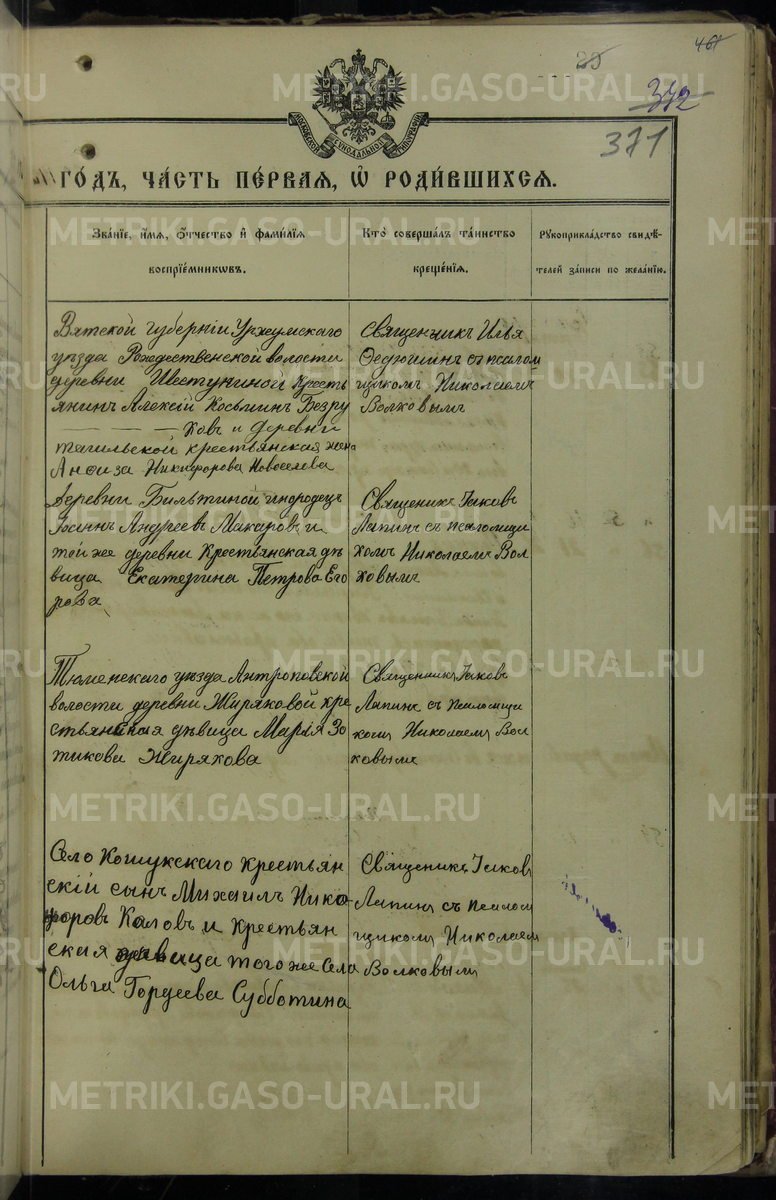 461
25
372
371
МОСКОВСКОЙ СѴНОДАЛЬНОЙ ТИПОГРАФІИ
ГО́ДЪ, ЧА́СТЬ ПЕ́РВАЯ, Ѡ҆ РОДИ́ВШИХСЯ.
Зва́нїе, и҆́мя, ѻ҆́тчество и҆ фами́лїя
воспрїе́мникѡвъ.
Кто̀ соверша́лъ та́инство
креще́нїя.
Рꙋкоприкла́дство свидѣ́-
телей за́писи по жела́нїю.
Вятской губерніи Уржумскаго
уѣзда Рождественской волости
деревни Шестуниной кресть
янинъ Алексій Косьминъ Безру
— — — ковъ и деревни
тагильской крестьянская жена
Анфиза Никифорова Новоселева
Священникъ Илья
Федюшинъ съ псалом
щикомъ Николаемъ
Волковымъ
Деревни Бильтиной инородецъ
Іоаннъ Андреевъ Макаровъ и
той же деревни Крестьянская дѣ
вица Екатерина Петрова Его
рова
Священикъ Іаковъ
Лапинъ съ псаломщи
комъ Николаемъ Вол
ковымъ
Тюменскаго уѣзда Антроповской
волости деревни Жиряковой кре
стьянская дѣвица Марія Зо
тикова Жирякова
Священикъ Іаковъ
Лапинъ съ Псаломщи
комъ Николаемъ Вол
ковымъ
Село Кошукскаго крестьян
скій сынъ Михаилъ Ника
форовъ Каловъ и Крестьян
ская дѣвица того же Села
Ольга Гордеева Субботина
Священикъ Іаковъ
Лапинъ съ Псалом
щикомъ Николаем
Волковымъ
METRIKI.GASO-URAL.RU